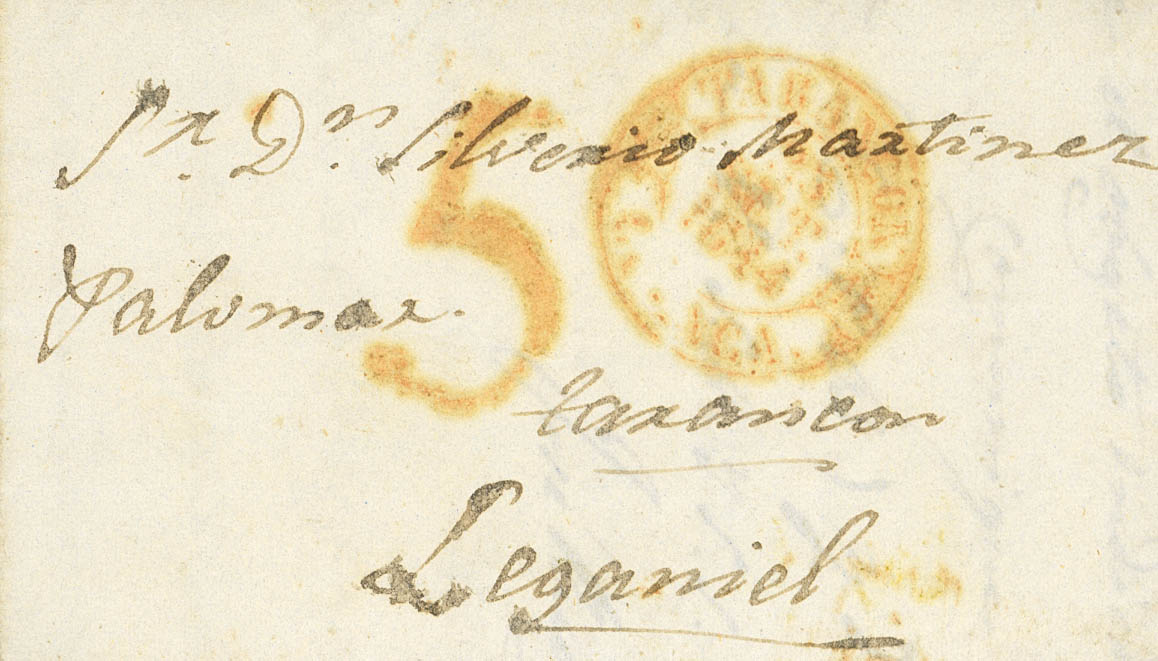 Sr. Dn. Silverio Martinez
Palomar.
5
TARANCON
tarancon
Leganiel